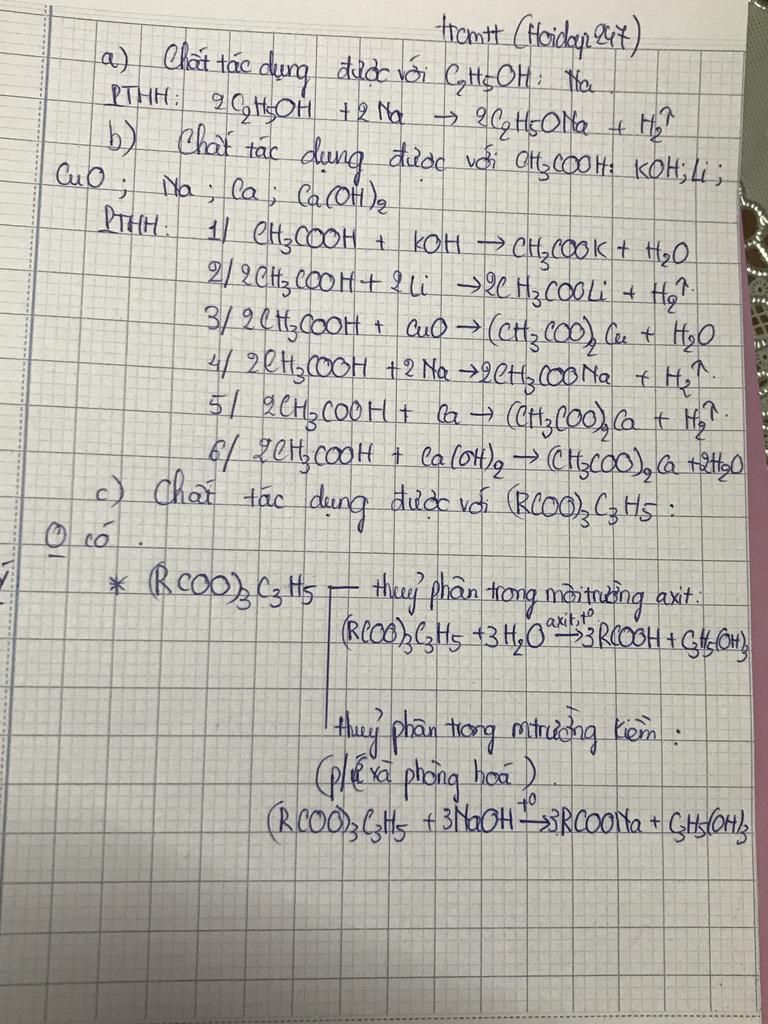 trcmtt (Hoidap247)
a) Chất tác dụng được với C₂H₅OH: Na
PTHH: 2C₂H₅OH + 2Na → 2C₂H₅ONa + H₂↑
b) Chất tác dụng được với CH₃COOH: KOH; Li;
CuO; Na; Ca; Ca(OH)₂
PTHH: 1/ CH₃COOH + KOH → CH₃COOK + H₂O
2/ 2CH₃COOH + 2Li → 2CH₃COOLi + H₂↑.
3/ 2CH₃COOH + CuO → (CH₃COO)₂Cu + H₂O
4/ 2CH₃COOH + 2Na → 2CH₃COONa + H₂↑.
5/ 2CH₃COOH + Ca → (CH₃COO)₂Ca + H₂↑.
6/ 2CH₃COOH + Ca(OH)₂ → (CH₃COO)₂Ca + 2H₂O
c) Chất tác dụng được với (RCOO)₃C₃H₅:
O có.
* (RCOO)₃C₃H₅ — thuỷ phân trong môi trường axit:
(RCOO)₃C₃H₅ + 3H₂O axit, t⁰→ 3RCOOH + C₃H₅(OH)₃
thuỷ phân trong mtrường kiềm:
(p/ứ xà phòng hoá).
(RCOO)₃C₃H₅ + 3NaOH t⁰→ 3RCOONa + C₃H₅(OH)₃